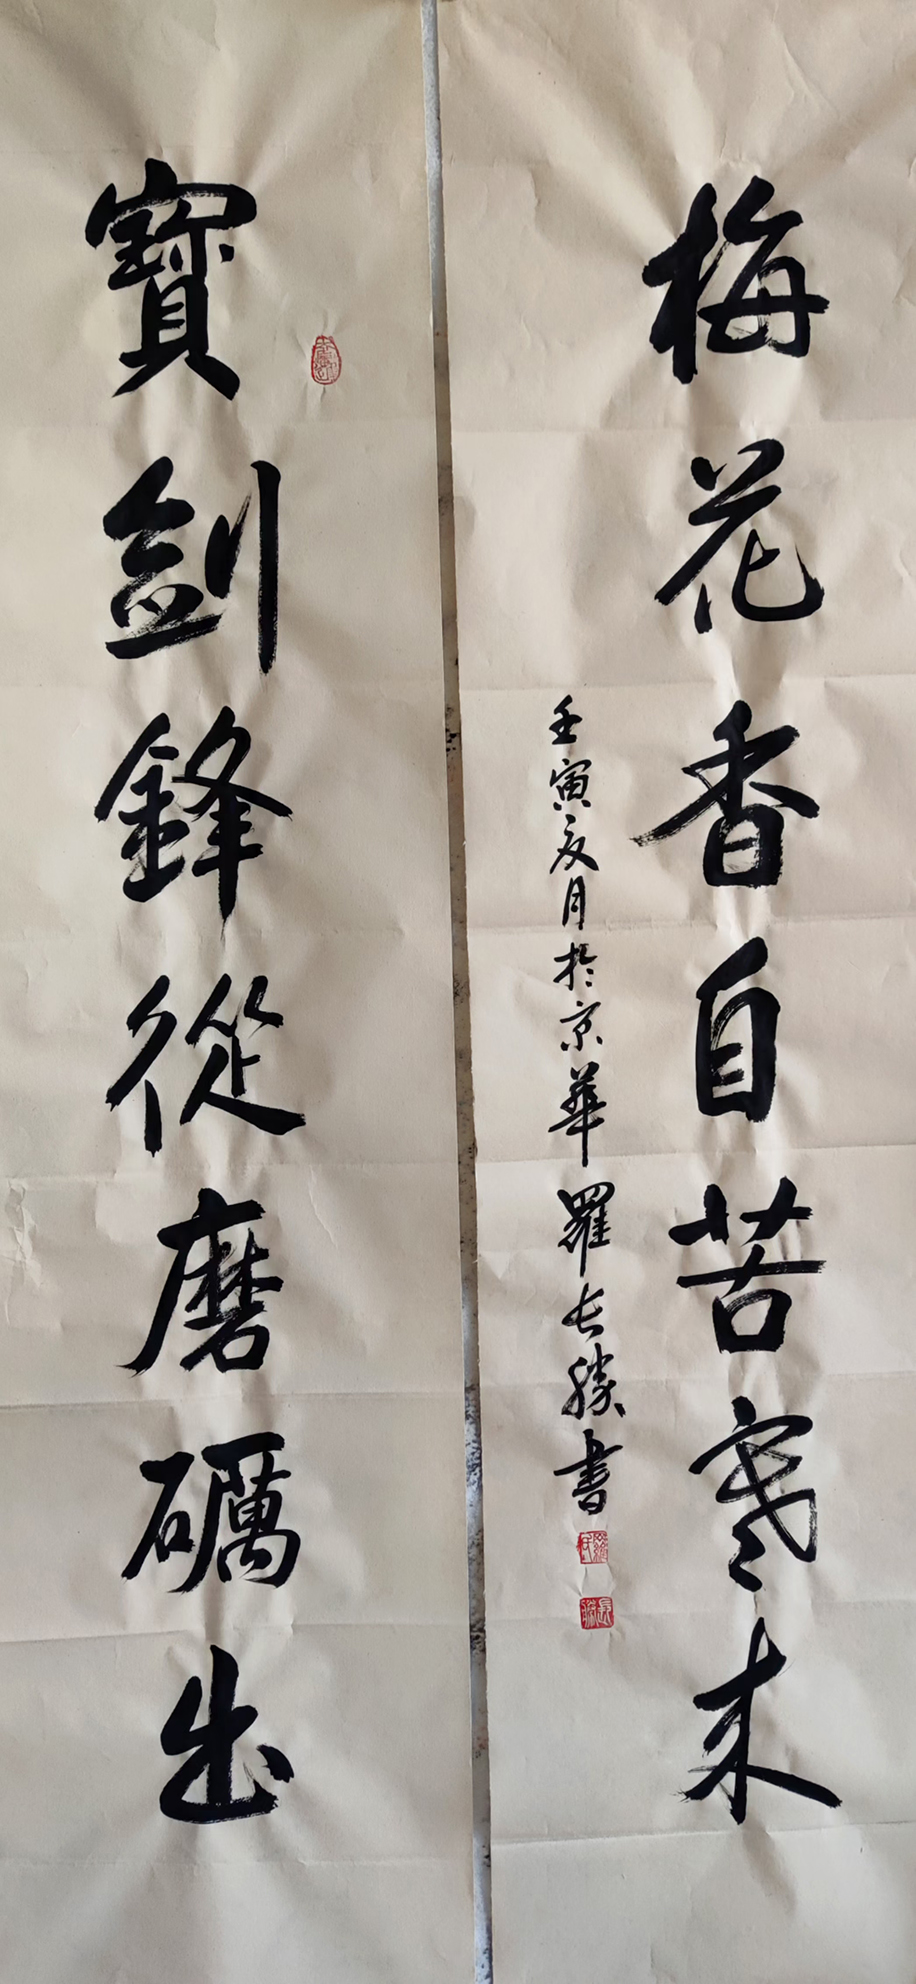 寶劍鋒從磨礪出
梅花香自苦寒来
壬寅夏月於京華羅長勝書
長勝